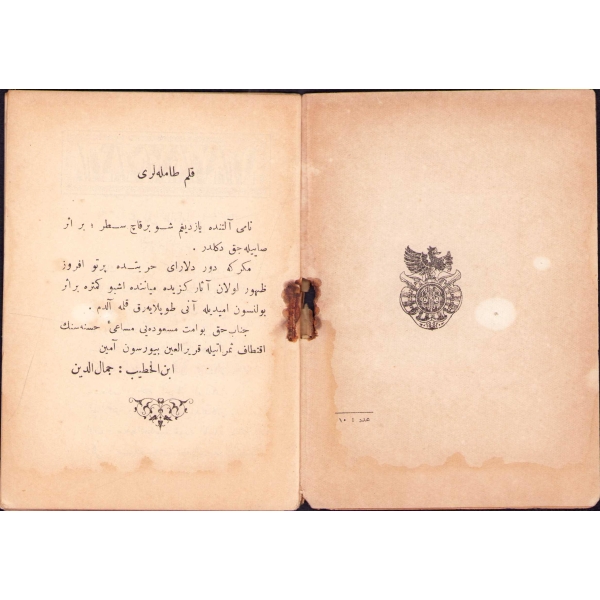 قلم طامله‌لری
نامی آلتنده یازدیغم شو برقاچ سطر ، بر اثر
صاییله‌جق دکلدر .
مکرکه دور دلارای حریتده پرتو افروز
ظهور اولان آثار کزیده میاننده اشبو کمتره بر اثر
بولنسون امیدیله آنی طوپلایه‌رق قلمه آلدم .
جناب حق بو امت مسعوده‌یی مساعیٔ حسنه‌سنك
اقتطاف ثمراتیله قریر العین بیورسون آمین
ابن الخطیب : جمال الدین
عدد : ١٥